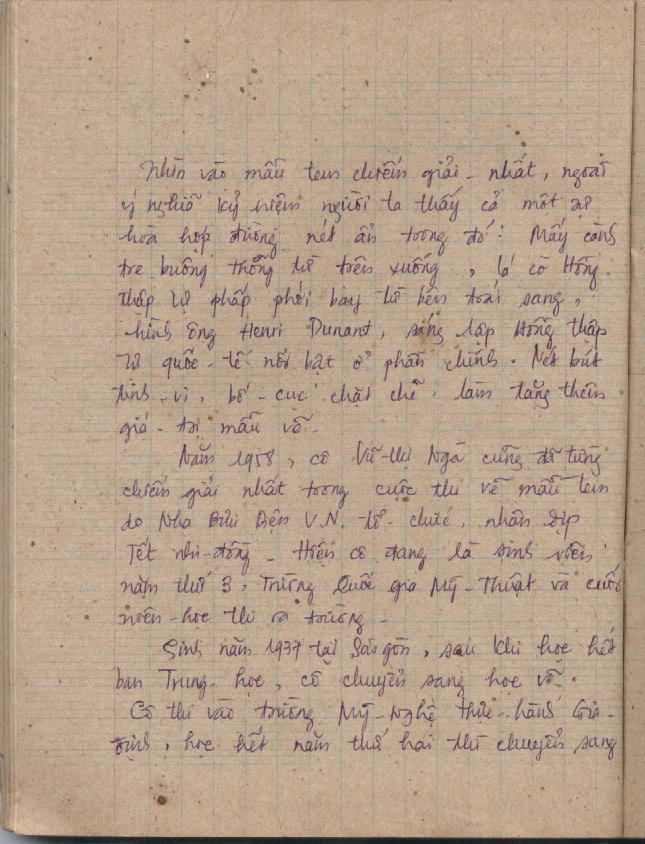 Nhìn vào mẫu tem chiếm giải - nhất, ngoài
ý nghĩa kỷ niệm người ta thấy cả một sự
hoà hợp đường nét ẩn trong đó: Mấy cành
tre buông thõng từ trên xuống, lá cờ Hồng
thập tự phấp phới bay từ bên trái sang,
hình ông Henri Dunant, sáng lập Hồng thập
tự quốc - tế nổi bật ở phần chính. Nét bút
tinh - vi, bố - cục chặt chẽ, làm tăng thêm
giá - trị mẫu vẽ.
Năm 1958, cô Vũ-thị Ngà cũng đã từng
chiếm giải nhất trong cuộc thi vẽ mẫu tem
do Nha Bưu Điện V.N. tổ - chức, nhân dịp
Tết nhi-đồng - Hiện cô đang là sinh viên
năm thứ 3, Trường Quốc gia Mỹ - Thuật và cuối
niên - học thi ra trường -
Sinh năm 1937 tại Sài gòn, sau khi học hết
ban Trung - học, cô chuyển sang học vẽ.
Cô thi vào trường Mỹ - Nghệ thực - hành Gia -
định, học hết năm thứ hai thì chuyển sang